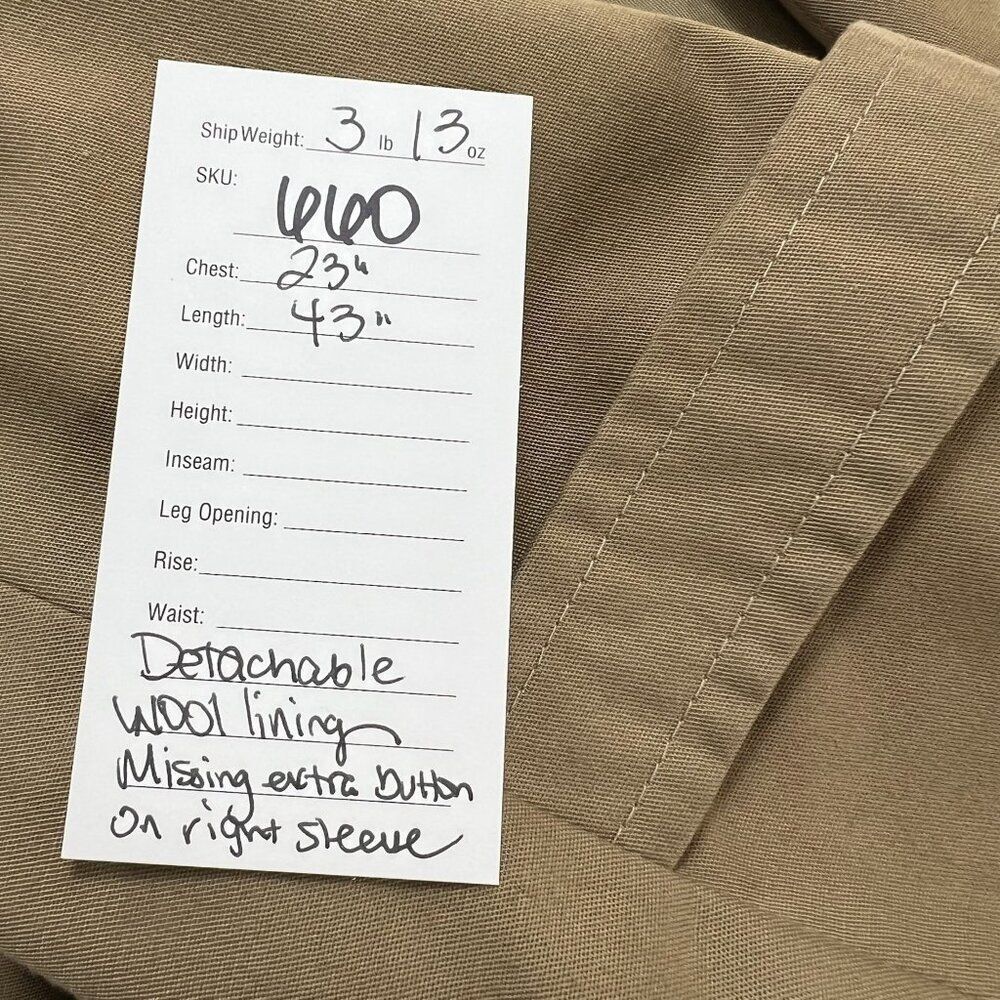 Ship Weight: 3 lb 13 oz
SKU: 660
Chest: 23"
Length: 43"
Width:
Height:
Inseam:
Leg Opening:
Rise:
Waist:
Detachable
wool lining
Missing extra button
on right sleeve